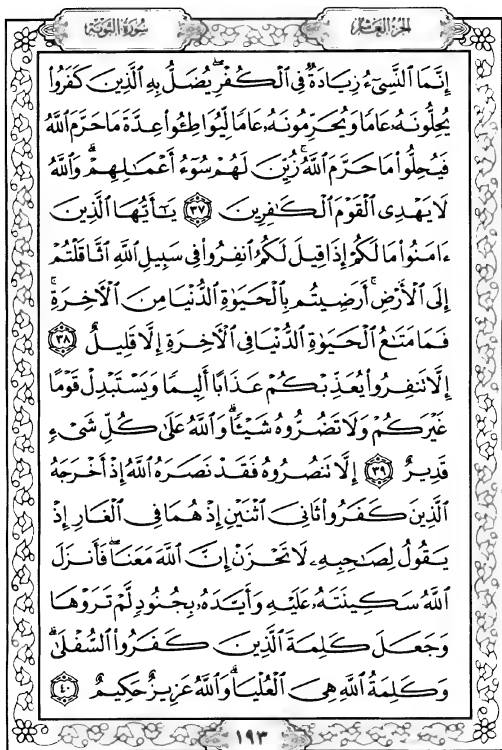 سُورَةُ التَّوْبَةِ
الجُزْءُ العَاشِرُ
إِنَّمَا ٱلنَّسِىٓءُ زِيَادَةٌ فِى ٱلْكُفْرِ ۖ يُضَلُّ بِهِ ٱلَّذِينَ كَفَرُوا۟
يُحِلُّونَهُۥ عَامًا وَيُحَرِّمُونَهُۥ عَامًا لِّيُوَاطِـُٔوا۟ عِدَّةَ مَا حَرَّمَ ٱللَّهُ
فَيُحِلُّوا۟ مَا حَرَّمَ ٱللَّهُ ۚ زُيِّنَ لَهُمْ سُوٓءُ أَعْمَـٰلِهِمْ ۗ وَٱللَّهُ
لَا يَهْدِى ٱلْقَوْمَ ٱلْكَـٰفِرِينَ ٣٧ يَـٰٓأَيُّهَا ٱلَّذِينَ
ءَامَنُوا۟ مَا لَكُمْ إِذَا قِيلَ لَكُمُ ٱنفِرُوا۟ فِى سَبِيلِ ٱللَّهِ ٱثَّاقَلْتُمْ
إِلَى ٱلْأَرْضِ ۚ أَرَضِيتُم بِٱلْحَيَوٰةِ ٱلدُّنْيَا مِنَ ٱلْـَٔاخِرَةِ ۚ
فَمَا مَتَـٰعُ ٱلْحَيَوٰةِ ٱلدُّنْيَا فِى ٱلْـَٔاخِرَةِ إِلَّا قَلِيلٌ ٣٨
إِلَّا تَنفِرُوا۟ يُعَذِّبْكُمْ عَذَابًا أَلِيمًا وَيَسْتَبْدِلْ قَوْمًا
غَيْرَكُمْ وَلَا تَضُرُّوهُ شَيْـًٔا ۗ وَٱللَّهُ عَلَىٰ كُلِّ شَىْءٍ
قَدِيرٌ ٣٩ إِلَّا تَنصُرُوهُ فَقَدْ نَصَرَهُ ٱللَّهُ إِذْ أَخْرَجَهُ
ٱلَّذِينَ كَفَرُوا۟ ثَانِىَ ٱثْنَيْنِ إِذْ هُمَا فِى ٱلْغَارِ إِذْ
يَقُولُ لِصَـٰحِبِهِۦ لَا تَحْزَنْ إِنَّ ٱللَّهَ مَعَنَا ۖ فَأَنزَلَ
ٱللَّهُ سَكِينَتَهُۥ عَلَيْهِ وَأَيَّدَهُۥ بِجُنُودٍ لَّمْ تَرَوْهَا
وَجَعَلَ كَلِمَةَ ٱلَّذِينَ كَفَرُوا۟ ٱلسُّفْلَىٰ ۗ
وَكَلِمَةُ ٱللَّهِ هِىَ ٱلْعُلْيَا ۗ وَٱللَّهُ عَزِيزٌ حَكِيمٌ ٤٠
١٩٣